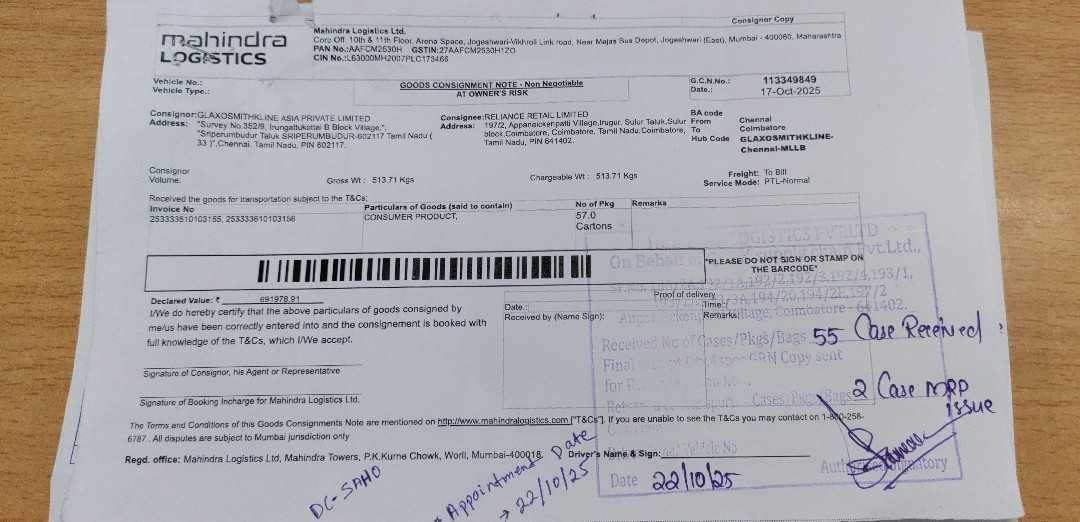 Consignor Copy
mahindra
LOGISTICS
Mahindra Logistics Ltd.
Corp Off: 10th & 11th Floor, Arena Space, Jogeshwari-Vikhroli Link road, Near Majas Bus Depot, Jogeshwari (East), Mumbai - 400060, Maharashtra
PAN No.:AAFCM2530H GSTIN:27AAFCM2530H1ZO
CIN No.:L63000MH2007PLC173466
Vehicle No.:
Vehicle Type.:
GOODS CONSIGNMENT NOTE - Non Negotiable
AT OWNER'S RISK
G.C.N.No.: 113349849
Date.: 17-Oct-2025
Consignor:GLAXOSMITHKLINE ASIA PRIVATE LIMITED
Address: "Survey No.352/9, Irungattukottai B Block Village,",
"Sriperumbudur Taluk SRIPERUMBUDUR-602117 Tamil Nadu (
33 )",Chennai, Tamil Nadu, PIN 602117.
Consignee:RELIANCE RETAIL LIMITED
Address: 197/2, Appanaickenpatti Village,Irugur, Sulur Taluk,Sulur
block,Coimbatore, Coimbatore, Tamil Nadu,Coimbatore,
Tamil Nadu, PIN 641402.
BA code
From Chennai
To Coimbatore
Hub Code GLAXOSMITHKLINE-
Chennai-MLLB
Consignor
Volume:
Gross Wt : 513.71 Kgs
Chargeable Wt : 513.71 Kgs
Freight: To Bill
Service Mode: PTL-Normal
Received the goods for transportation subject to the T&Cs:
Invoice No Particulars of Goods (said to contain) No of Pkg Remarks
253333610103155, 253333610103156 CONSUMER PRODUCT, 57.0
Cartons
"PLEASE DO NOT SIGN OR STAMP ON
THE BARCODE"
Declared Value: ₹ 691978.91
I/We do hereby certify that the above particulars of goods consigned by
me/us have been correctly entered into and the consignement is booked with
full knowledge of the T&Cs, which I/We accept.
Proof of delivery
Date.: Time.:
Received by (Name Sign): Remarks:
LOGISTICS PVT.LTD
On Behalf of Pvt.Ltd.,
192/2,192/3,192/4,193/1,
194/20,194/2E,197/2
Village, Coimbatore - 641402.
Received No of Cases/Pkgs/Bags 55 Case Received
Final GRN Copy sent
for
Cases/Pkgs/Bags 2 Case MRP
issue
Vehicle No
Authorised Signatory
Date 22/10/25
Signature of Consignor, his Agent or Representative
Signature of Booking Incharge for Mahindra Logistics Ltd.
The Terms and Conditions of this Goods Consignments Note are mentioned on http://www.mahindralogistics.com ["T&Cs"]. If you are unable to see the T&Cs you may contact on 1-800-258-
6787 . All disputes are subject to Mumbai jurisdiction only
Regd. office: Mahindra Logistics Ltd, Mahindra Towers, P.K.Kurne Chowk, Worli, Mumbai-400018. Driver's Name & Sign:
DC-SAHO
Appointment Date
→ 22/10/25